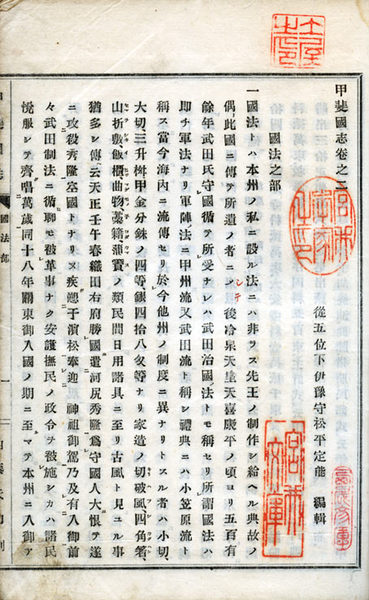 甲斐國志卷之二
從五位下伊豫守松平定能 編輯
國法之部
一國法トハ本州ノ私ニ設ル法ニハ非ラス先王ノ制作シ給ヘル典故ノ
偶此國ニ傳ヘ所遺ノ者ニシテ後冷泉天皇天喜康平ノ頃ヨリ五百有
餘年武田氏守國循テ所受ナレハ武田治國法トモ稱セリ所謂國法ハ
即チ軍法ナリ軍陣法ニ甲州流又武田流ト稱シ禮典ニハ小笠原流ト
稱ス當今海内ニ流傳セリ於今他州ノ制度ニ異ナリトスル者ハ小切、
大切、三升桝甲金分銖ノ四等、銀四十八匁等ナリ家造ノ切破風四角箸、
山折敷飯櫃曲物藁籍蒲賣ノ類民間日用諸具ニ至リ古風ト見ユル事
猶多シ傳云天正壬午春織田右府勝國遣河尻秀隆爲守國人大恨テ遂
ニ攻殺秀隆空國トナリヌ疾愬于濱松奉迎 神祖御駕乃及有入御前
々武田制法ニ循聊モ被革事ナク安護撫民ノ政令ヲ被施シカハ諸民
悅服シテ齊唱萬歲同十八年關東御入國ノ期ニ至マテ本州ニ入御ア
國法部
一